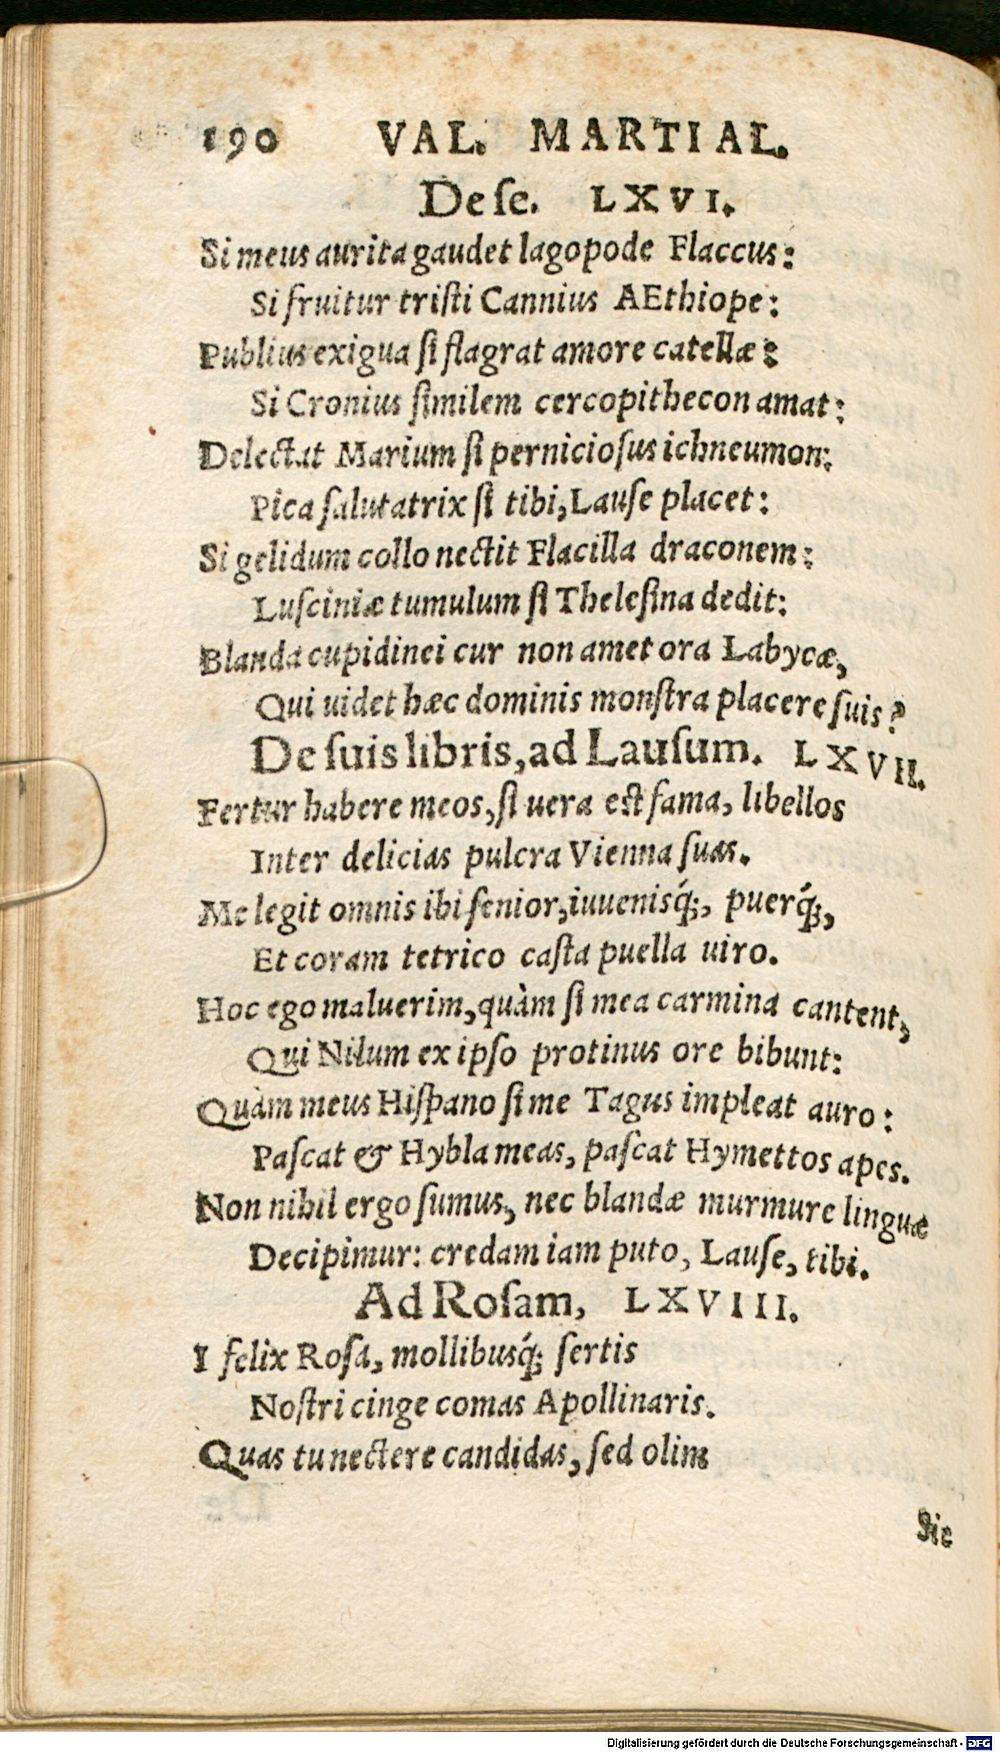 190 VAL. MARTIAL.
De ſe. LXVI.
Si meus aurita gaudet lagopode Flaccus:
Si fruitur triſti Cannius AEthiope:
Publius exigua ſi flagrat amore catellæ:
Si Cronius ſimilem cercopithecon amat:
Delectat Marium ſi pernicioſus ichneumon:
Pica ſalutatrix ſi tibi, Lauſe placet:
Si gelidum collo nectit Flacilla draconem:
Luſciniæ tumulum ſi Theleſina dedit:
Blanda cupidinei cur non amet ora Labycæ,
Qui uidet hæc dominis monſtra placere ſuis?
De ſuis libris, ad Lauſum. LXVII.
Fertur habere meos, ſi uera eſt fama, libellos
Inter delicias pulcra Vienna ſuas.
Me legit omnis ibi ſenior, iuuenisq́;, puerq́;,
Et coram tetrico caſta puella uiro.
Hoc ego maluerim, quàm ſi mea carmina cantent,
Qui Nilum ex ipſo protinus ore bibunt:
Quàm meus Hiſpano ſi me Tagus impleat auro:
Paſcat & Hybla meas, paſcat Hymettos apes.
Non nihil ergo ſumus, nec blandæ murmure linguæ
Decipimur: credam iam puto, Lauſe, tibi.
Ad Roſam, LXVIII.
I felix Roſa, mollibusq́; ſertis
Noſtri cinge comas Apollinaris.
Quas tu nectere candidas, ſed olim
Sic
Digitalisierung gefördert durch die Deutsche Forschungsgemeinschaft - DFG